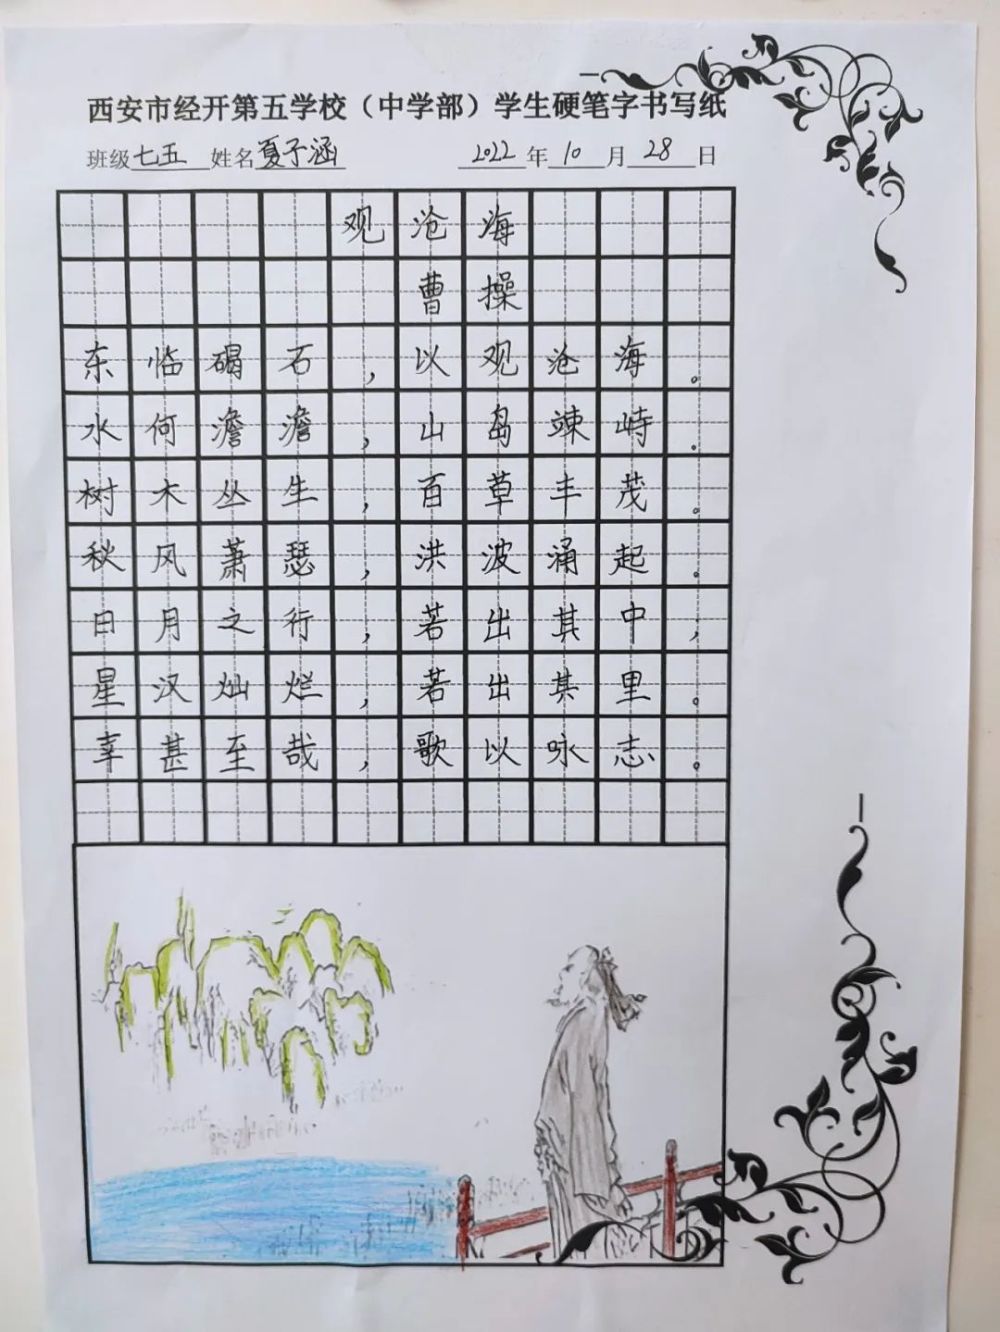 西安市经开第五学校（中学部）学生硬笔字书写纸
班级七五 姓名夏子涵 2022年10月28日
观沧海
曹操
东临碣石，以观沧海。
水何澹澹，山岛竦峙。
树木丛生，百草丰茂。
秋风萧瑟，洪波涌起。
日月之行，若出其中，
星汉灿烂，若出其里。
幸甚至哉，歌以咏志。